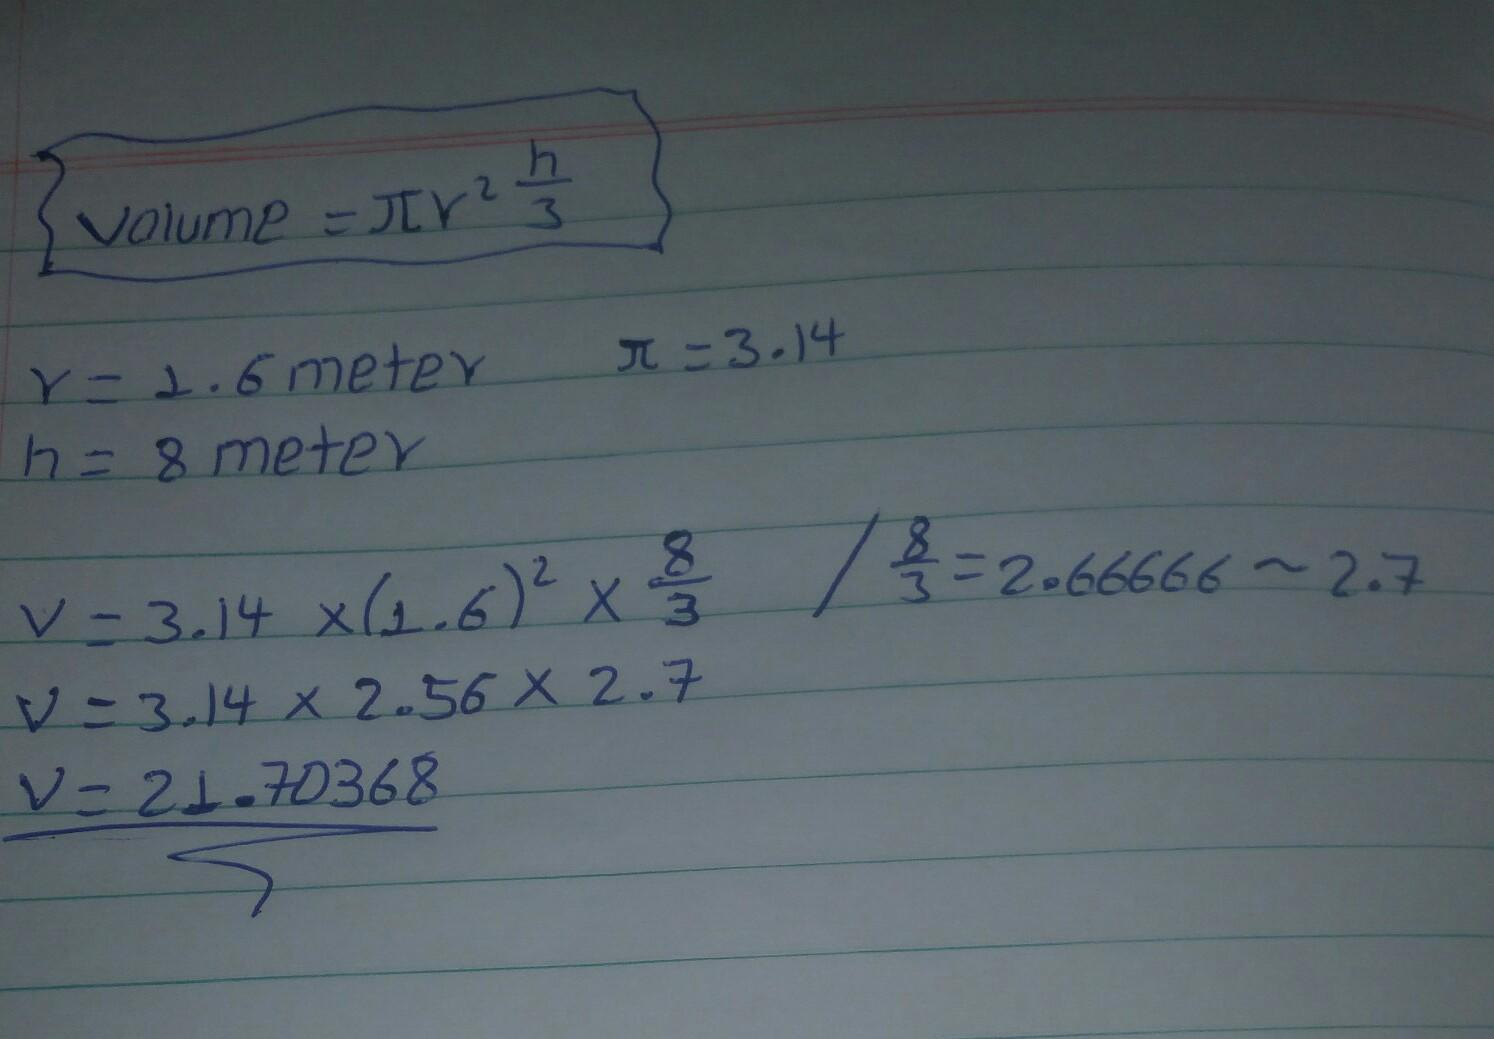 volume = πr² h/3
r = 1.6 meter π = 3.14
h = 8 meter
V = 3.14 x (1.6)² x 8/3 / 8/3 = 2.66666 ~ 2.7
V = 3.14 x 2.56 x 2.7
V = 21.70368